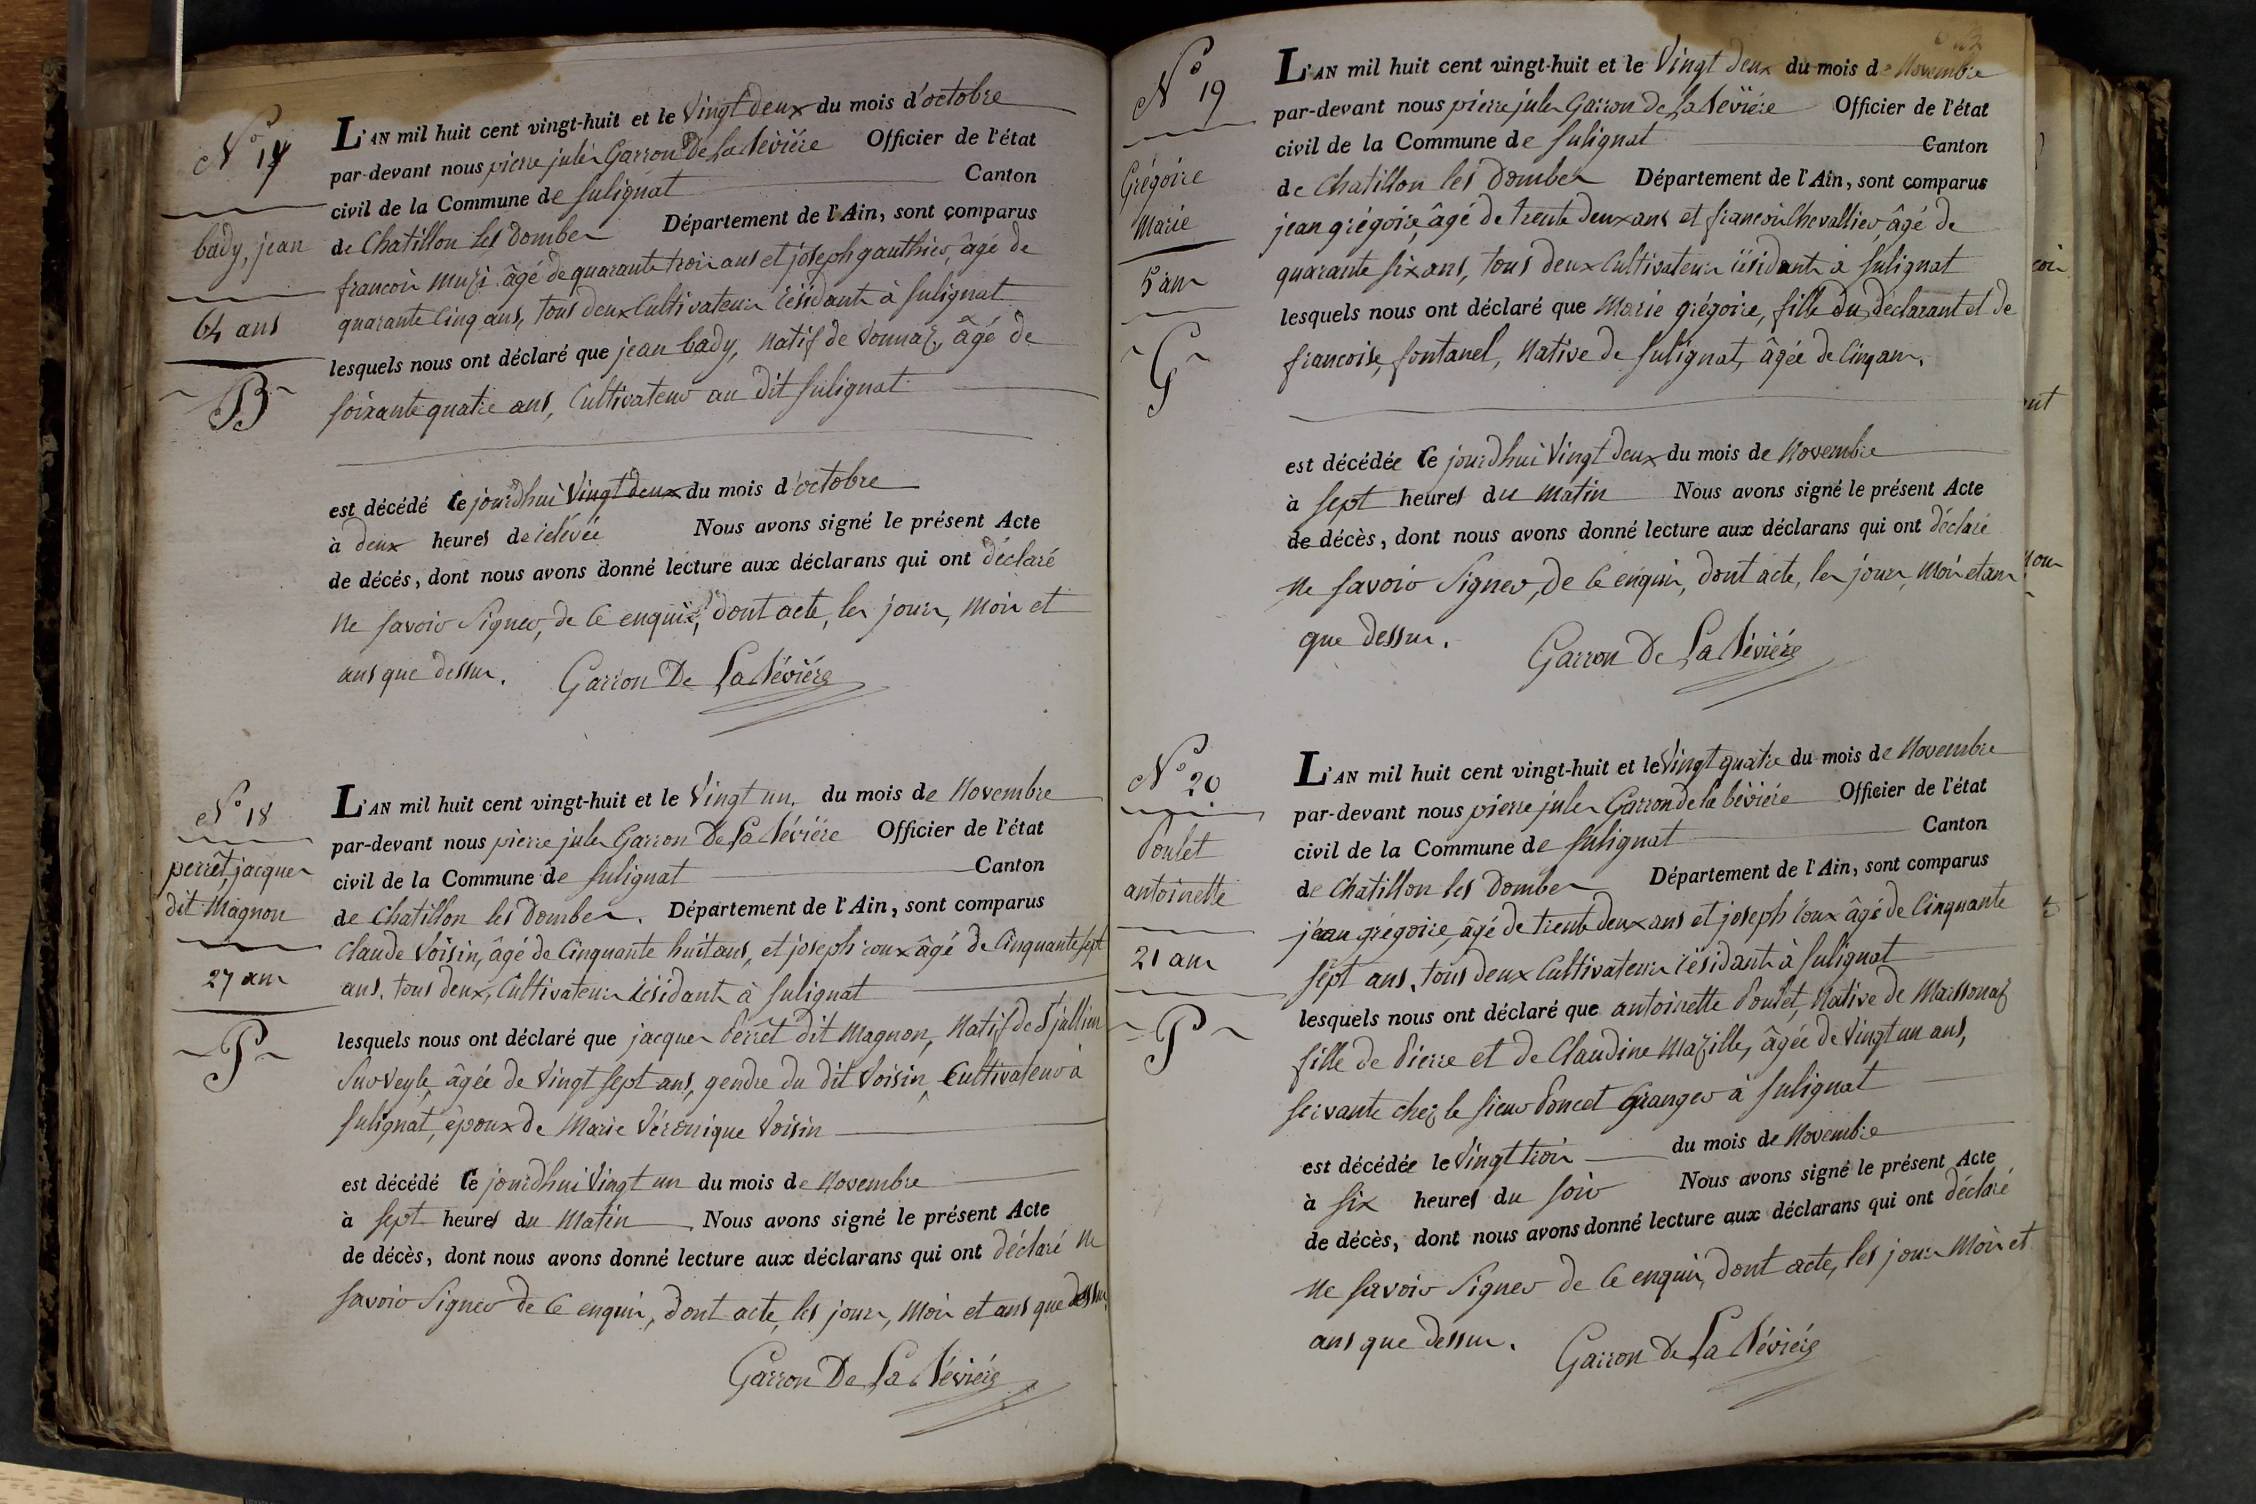 N° 17
bady, jean
64 ans
B
L'AN mil huit cent vingt-huit et le Vingt deux du mois d'octobre
par-devant nous pierre jules Garron De La Bévière Officier de l'état
civil de la Commune de Sulignat Canton
de Chatillon les Dombes Département de l'Ain, sont comparus
francois Muzi âgé de quarante trois ans et joseph gauthier, âgé de
quarante Cinq ans, tous deux Cultivateurs résidants à Sulignat
lesquels nous ont déclaré que jean bady, natif de Vonnaz, âgé de
soixante quatre ans, Cultivateur au dit Sulignat
est décédé ce jourdhui Vingt deux du mois d'octobre
à deux heures de relévée Nous avons signé le présent Acte
de décès, dont nous avons donné lecture aux déclarans qui ont déclaré
ne savoir signer, de ce enquis, dont acte, les jour, mois et
ans que dessus. Garron De La Bévière
N° 18
perret, jacques
dit Magnon
27 ans
P
L'AN mil huit cent vingt-huit et le Vingt un. du mois de Novembre
par-devant nous pierre jules Garron De La Bévière Officier de l'état
civil de la Commune de Sulignat Canton
de Chatillon les Dombes. Département de l'Ain, sont comparus
Claude Voisin, âgé de Cinquante huit ans, et joseph roux âgé de Cinquante sept
ans, tous deux, Cultivateurs résidants à Sulignat
lesquels nous ont déclaré que jacques Perret dit Magnon, Natif de St jullien
Sur Veyle, âgée de Vingt sept ans, gendre du dit Voisin, Cultivateur à
Sulignat, époux de Marie Véronique Voisin
est décédé ce jourdhui Vingt un du mois de Novembre
à sept heures du Matin Nous avons signé le présent Acte
de décès, dont nous avons donné lecture aux déclarans qui ont déclaré ne
savoir signer de ce enquis, dont acte, les jour, mois et ans que dessus.
Garron De La Bévière
N° 19
Grégoire
Marie
5 ans
G
L'AN mil huit cent vingt-huit et le Vingt deux du mois de Novembre
par-devant nous pierre jules Garron de La Bévière Officier de l'état
civil de la Commune de Sulignat Canton
de Chatillon les Dombes Département de l'Ain, sont comparus
jean grégoire, âgé de trente deux ans et francois Chevallier, âgé de
quarante six ans, tous deux Cultivateurs résidants à Sulignat
lesquels nous ont déclaré que Marie grégoire, fille du déclarant et de
francoise, fontanel, Native de Sulignat, âgée de Cinq ans.
est décédée ce jourdhui Vingt deux du mois de Novembre
à sept heures du Matin Nous avons signé le présent Acte
de décès, dont nous avons donné lecture aux déclarans qui ont déclaré
ne savoir signer, de ce enquis, dont acte, les jour, mois et ans
que dessus. Garron De La Bévière
N° 20
Poulet
antoinette
21 ans
P
L'AN mil huit cent vingt-huit et le Vingt quatre du mois de Novembre
par-devant nous pierre jules Garron de la bévière Officier de l'état
civil de la Commune de Sulignat Canton
de Chatillon les Dombes Département de l'Ain, sont comparus
jean grégoire, âgé de trente deux ans et joseph roux âgé de Cinquante
sept ans, tous deux Cultivateurs résidants à Sulignat
lesquels nous ont déclaré que antoinette Poulet, Native de Marssonaz
fille de Pierre et de Claudine Mazille, âgée de Vingt un ans,
servante chez le sieur Poncet Granger à Sulignat
est décédée le Vingt trois du mois de Novembre
à six heures du soir Nous avons signé le présent Acte
de décès, dont nous avons donné lecture aux déclarans qui ont déclaré
ne savoir signer de ce enquis, dont acte, les jour mois et
ans que dessus. Garron De La Bévière